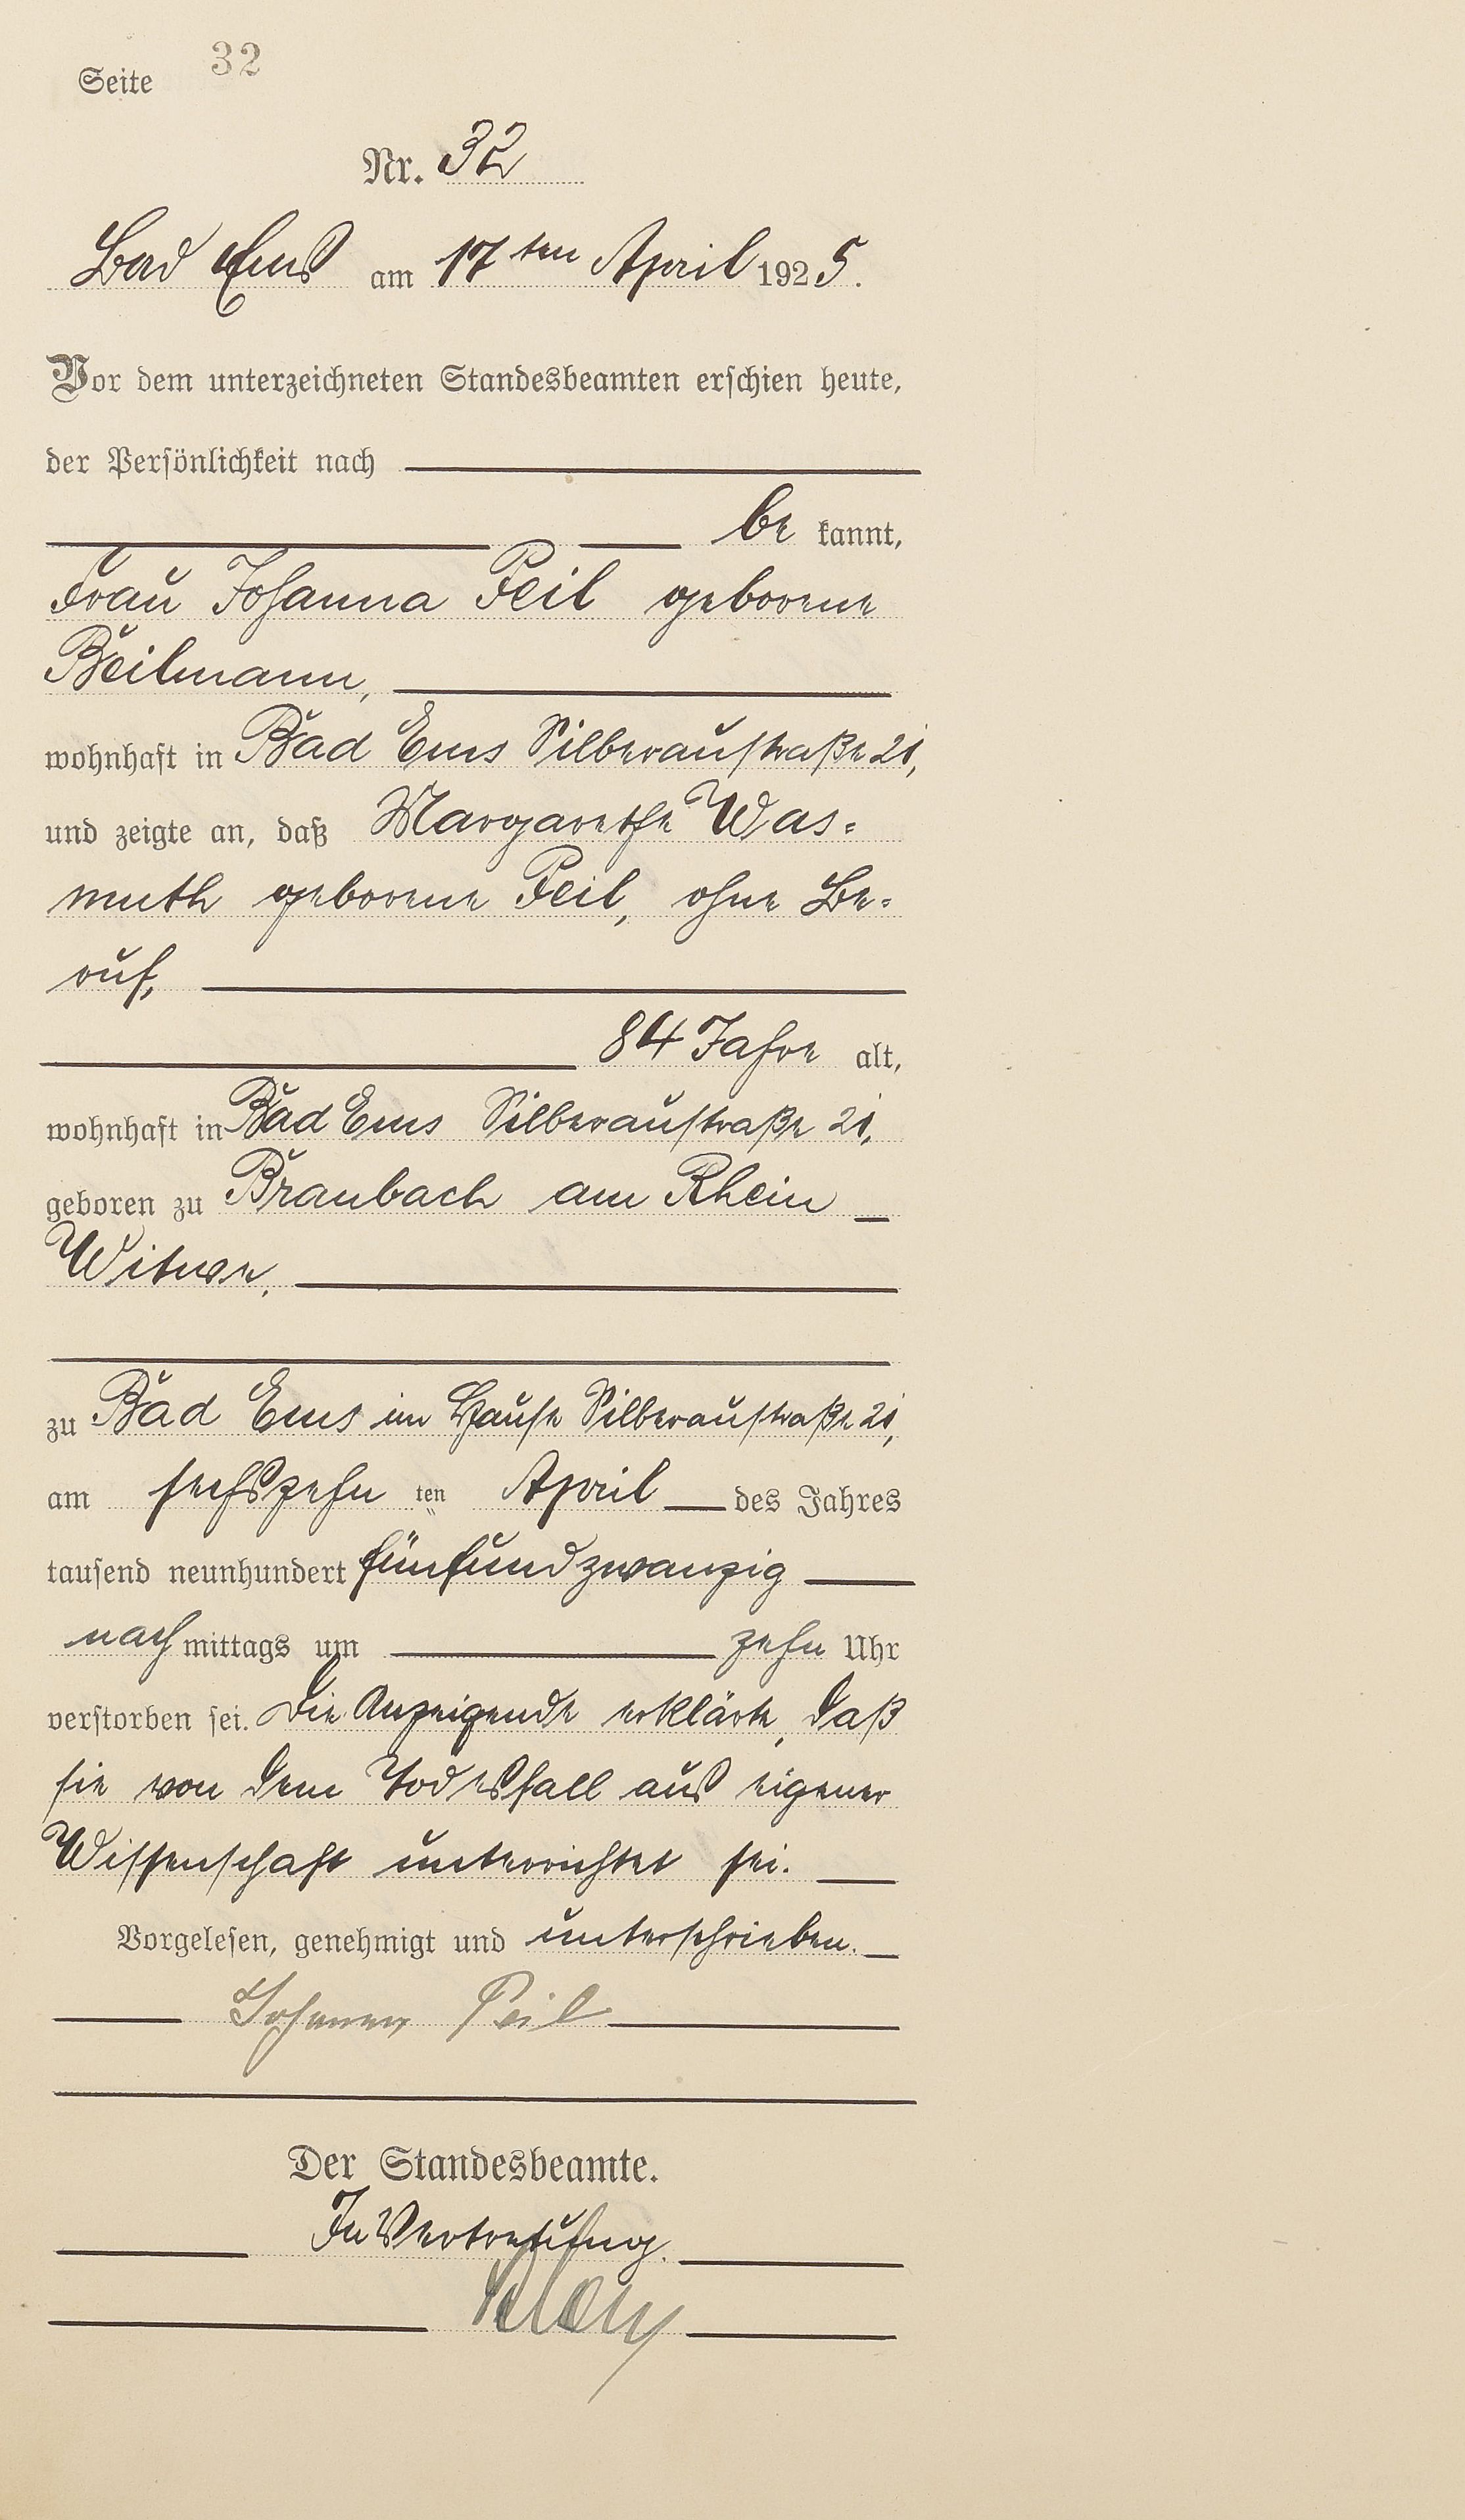 Seite 32
Nr. 32
Bad Ems am 17ten April 1925.
Vor dem unterzeichneten Standesbeamten erschien heute,
der Persönlichkeit nach
be kannt,
Frau Johanna Peil geborene
Beilmann,
wohnhaft in Bad Ems Silberaustraße 21,
und zeigte an, daß Margarethe Was=
muth geborene Peil, ohne Be=
ruf,
84 Jahre alt,
wohnhaft in Bad Ems Silberaustraße 21,
geboren zu Braubach am Rhein
Witwe,
zu Bad Ems im Hause Silberaustraße 21,
am sechszehn ten April des Jahres
tausend neunhundert fünfundzwanzig
nach mittags um zehn Uhr
verstorben sei. Die Anzeigende erklärte, daß
sie von dem Todesfall aus eigener
Wissenschaft unterrichtet sei.
Vorgelesen, genehmigt und unterschrieben.
Johanna Peil
Der Standesbeamte.
In Vertretung.